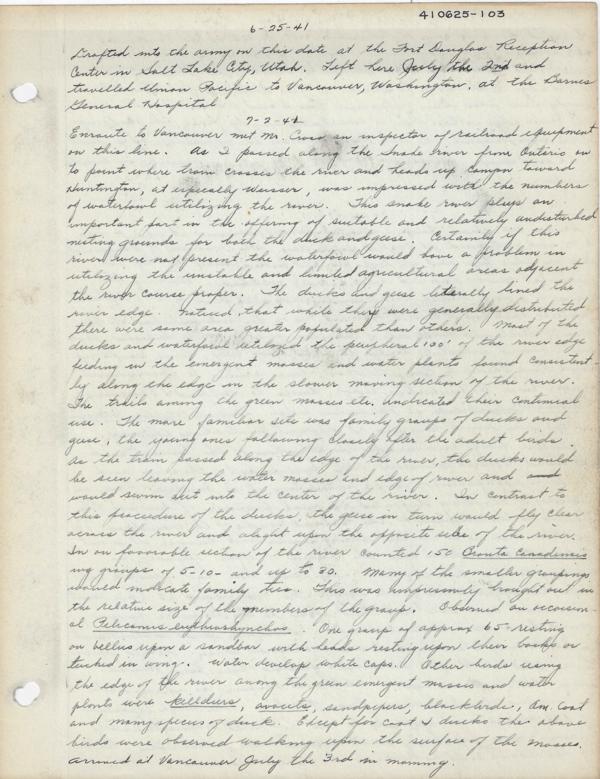 410625-103
6-25-41
Drafted into the army on this date at the Fort Douglas Reception
Center in Salt Lake City, Utah. Left here July the 2nd and
travelled Union Pacific to Vancouver, Washington, at the Barnes
General Hospital
7-2-41
Enroute to Vancouver met Mr. Cross an inspector of railroad equipment
on this line. As I passed along the Snake river from Ontario on
to point where train crosses the river and heads up canyon toward
Huntington, at especially Weiser, was impressed with the numbers
of waterfowl utilizing the river. This snake river plays an
important part in the offering of suitable and relatively undisturbed
nesting grounds for both the duck and geese. Certainly if this
river were not present the waterfowl would have a problem in
utilizing the unstable and limited agricultural areas adjacent
the river course proper. The ducks and geese literally lined the
river edge. Noticed that while they were generally distributed
there were some area greater populated than others. Most of the
ducks and waterfowl utilized the peripheral 100' of the river edge
feeding in the emergent mosses and water plants found consistent-
ly along the edge in the slower moving section of the river.
The trails among the green mosses etc. indicated their continual
use. The more familiar sets was family groups of ducks and
geese, the young ones following closely after the adult birds.
As the train passed along the edge of the river, the ducks would
be seen leaving the water mosses and edge of river and
would swim out into the center of the river. In contrast to
this procedure of the ducks the geese in turn would fly clear
across the river and alight upon the opposite side of the river.
In on favorable section of the river counted 150 Branta Canadensis
in groups of 5-10- and up to 30. Many of the smaller groupings
would indicate family ties. This was impressively brought out in
the relative size of the members of the group. Observed an occasion-
al Pelicanus erythrorhynchos. One group of approx 65 resting
on bellies upon a sandbar with heads resting upon their backs or
tucked in wing. Water develop white caps. Other birds using
the edge of the river among the green emergent mosses and water
plants were killdeers, avocets, sandpipers, blackbirds, Am. Coot
and many species of duck. Except for coot & ducks the above
birds were observed walking upon the surface of the mosses.
Arrived at Vancouver July the 3rd in morning.